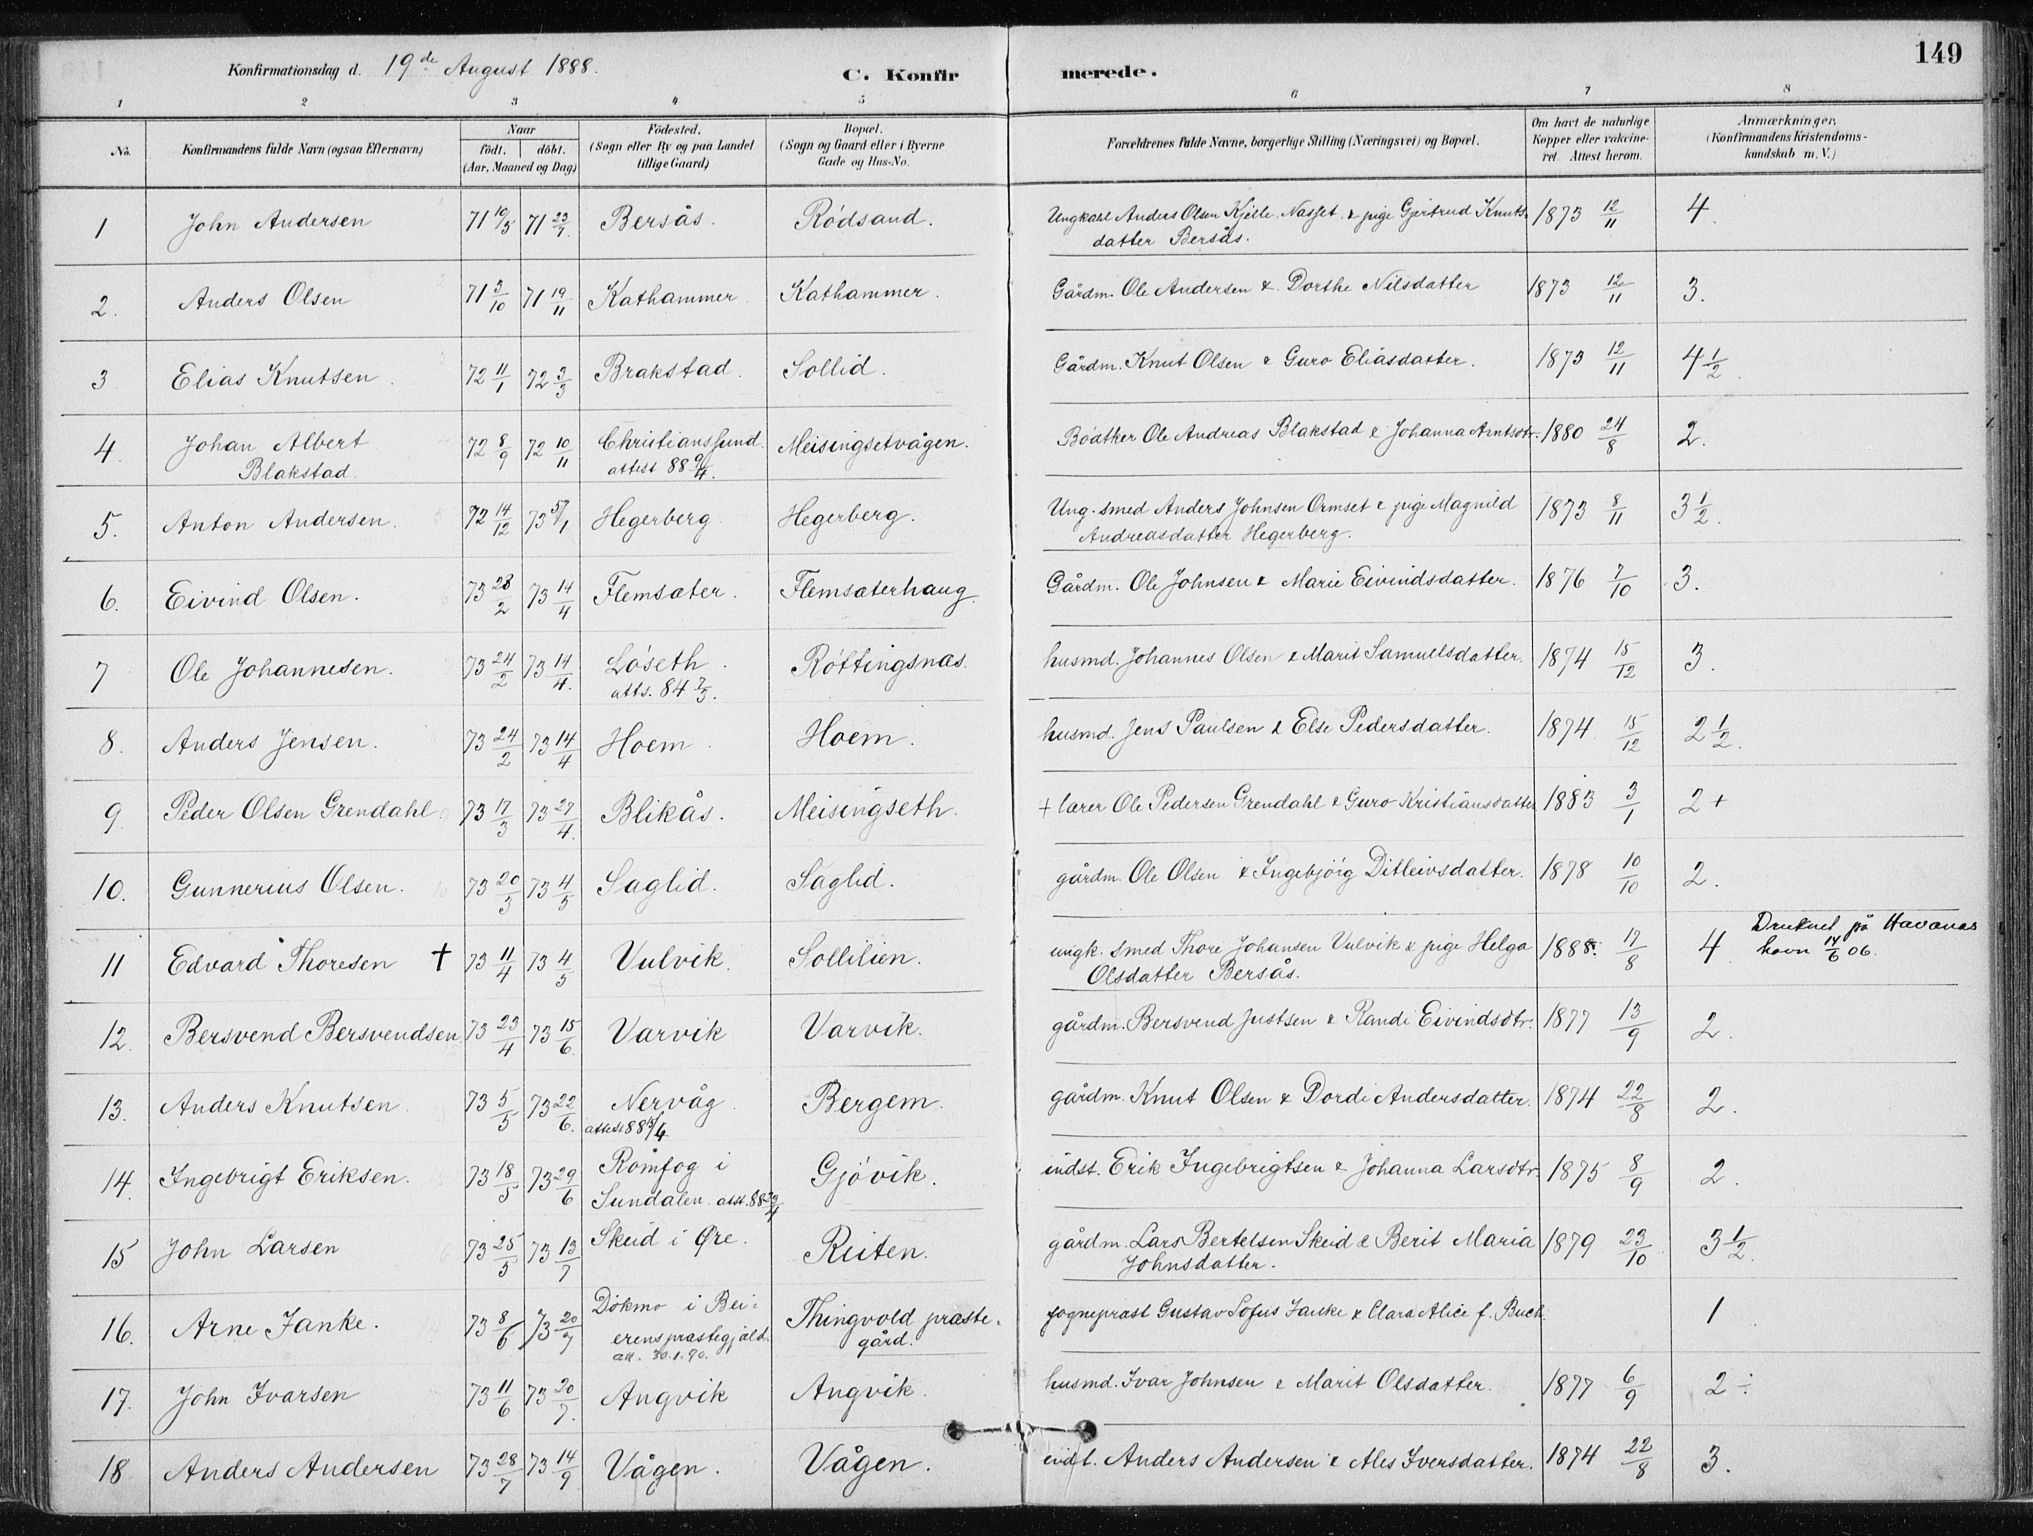 149
Konfirmationsdag d. 19de August 1888.
C. Konfirmerede.
1 2 3 4 5 6 7 8
No.
Konfirmandens fulde Navn (ogsaa Efternavn)
Naar
født. døbt.
(Aar, Maaned og Dag)
Fødested.
(Sogn eller By og paa Landet
tillige Gaard)
Bopæl.
(Sogn og Gaard eller i Byerne
Gade og Hus-No.
Forældrenes fulde Navne, borgerlige Stilling (Næringsvei) og Bopæl.
Om havt de naturlige
Kopper eller vakcine-
ret Attest herom.
Anmærkninger,
(Konfirmandens Kristendoms-
kundskab m. V.)
1 John Andersen 71 10/5 71 23/7 Bersås. Rødsand. Ungkahl Anders Olsen Kjelle, Næsset, & pige Gjertrud Knuts- 1873 12/11 4.
datter Bersås.
2. Anders Olsen 71 3/10 71 19/11 Kathammer. Kathammer. Gårdm. Ole Andersen & Dorthe Nilsdatter 1873 12/11 3.
3 Elias Knutsen. 72 11/1 72 3/3 Brakstad. Sollid. Gårdm. Knut Olsen & Guro Eliasdatter. 1873 12/11 4 1/2.
4. Johan Albert 72 8/9 72 10/11 Christianssund. Meisingsetvågen. Bødtker Ole Andreas Blakstad & Johanna Arntsdtr. 1880 24/8 2.
Blakstad. attest 88 9/4.
5. Anton Andersen. 72 14/12 73 5/1 Hegerberg. Hegerberg. Ung. smed Anders Johnsen Ormset & pige Magnild 1873 8/11 3 1/2.
Andreasdatter Hegerberg.
6. Eivind Olsen. 73 28/2 73 14/4 Flemsæter. Flemsæterhaug. Gårdm. Ole Johnsen & Marie Eivindsdatter. 1876 7/10 3.
7 Ole Johannesen. 73 24/2 73 14/4. Løseth. Røttingsnæs. husmd. Johannes Olsen & Marit Samuelsdatter. 1874 15/12 3.
atts. 84 7/3.
8. Anders Jensen. 73 24/2 73 14/4 Hoem. Hoem. husmd. Jens Paulsen & Else Pedersdatter. 1874 15/12 2 1/2.
9. Peder Olsen Grendahl. 73 17/3 73 27/4. Blikås. Meisingseth. + lærer Ole Pedersen Grendahl & Guro Kristiansdatter 1883 3/1 2+
10. Gunnerius Olsen. 73 20/3 73 4/5 Saglid. Saglid. gårdm. Ole Olsen & Ingebjørg Ditleivsdatter. 1878 10/10 2.
11 Edvard Thoresen † 73 11/4 73 4/5 Vulvik. Sollilien. ungk. smed Thore Johansen Vulvik & pige Helga 1888. 17/8 4 Druknet på Havanas
Olsdatter Bersås. havn 14/6 06.
12. Bersvend Bersvendsen 73 23/4 73 15/6. Varvik Varvik. gårdm. Bersvend Justsen & Randi Eivindsdtr. 1877 13/9 2.
13. Anders Knutsen. 73 5/5 73 22/6. Nervåg. Bergem. gårdm. Knut Olsen & Dordi Andersdatter. 1874 22/8 2.
attest 88 15/4
14. Ingebrigt Eriksen. 73 18/5 73 29/6 Romfog i Gjøvik. indst. Erik Ingebrigtsen & Johanna Larsdtr. 1875 8/9 2.
Sundalen. atst. 88 23/4
15 John Larsen 73 25/5 73 13/7 Skeid i Øre. Reiten. gårdm. Lars Bertelsen Skeid & Berit Maria 1879 23/10 3 1/2.
Johnsdatter.
16. Arne Janke. 73 8/6 73 20/7 Dokmo i Bei- Thingvold præste- sognepræst Gustav Sofus Janke & Clara Alice f. Buch. 1
erens præstegjæld. gård.
att. 30.1.90.
17. John Ivarsen 73 11/6 73 20/7. Angvik Angvik. husmd. Ivar Johnsen & Marit Olsdatter. 1877 6/9 2÷
18 Anders Andersen 73 28/7 73 14/9 Vågen. Vågen. indt. Anders Andersen & Ales Iversdatter. 1874 22/8 3.